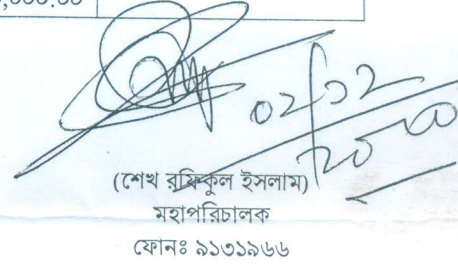 ,০০০.০০
০২/১২
(শেখ রফিকুল ইসলাম)
মহাপরিচালক
ফোনঃ ৯১৩১৯৬৬